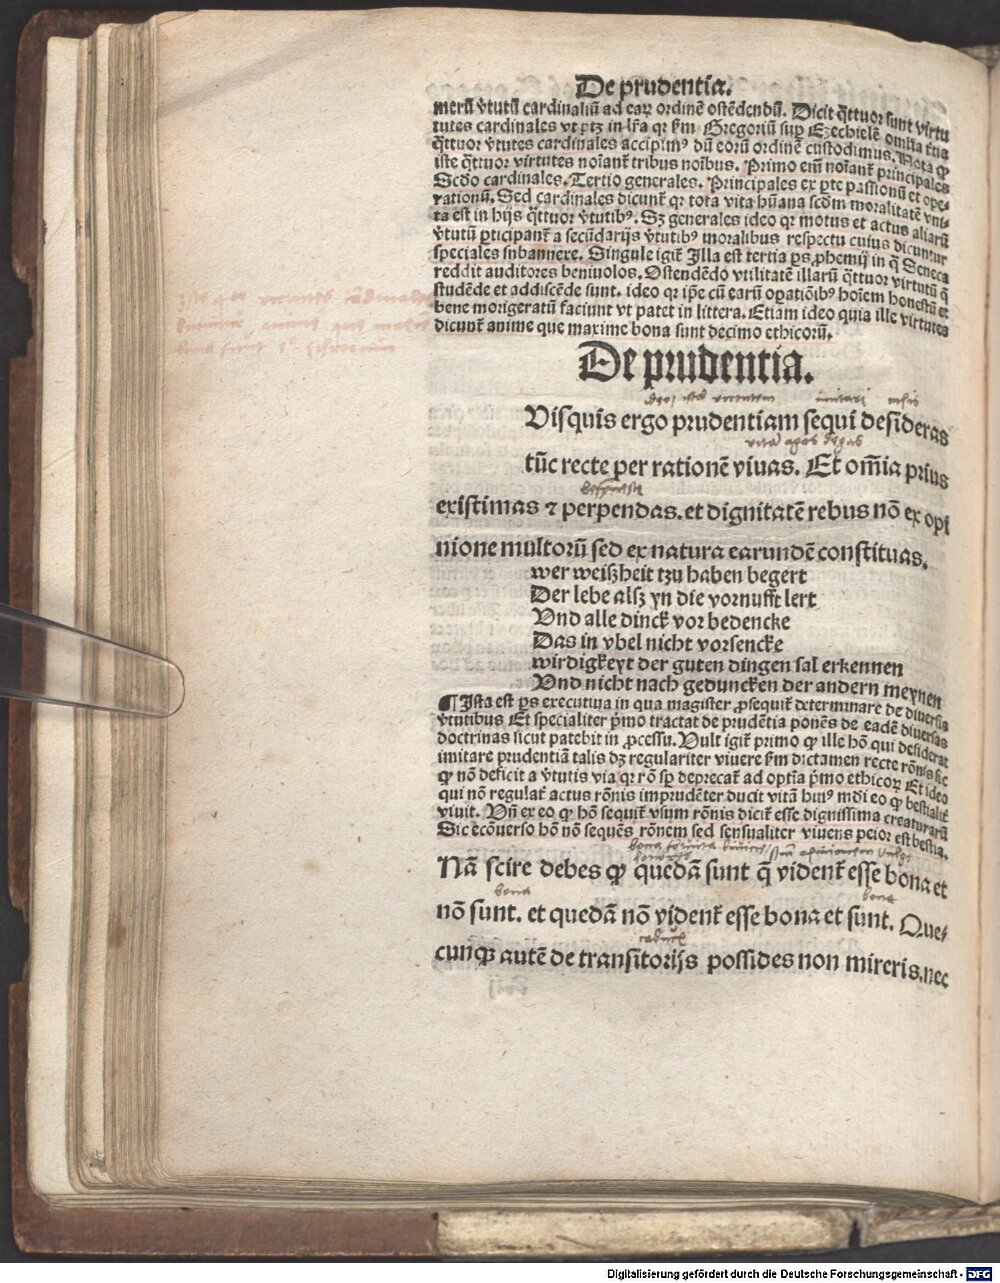 De prudentia.
merū v̄tutū cardinaliū ad eaꝝ ordinē ostēdendū. Dicit q̄ttuor sunt virtu
tutes cardinales vt ptꝫ in lr̄a qꝛ ẜm Gregoriū suꝑ Ezechielē omlia t̄tia
q̄ttuor v̄tutes cardinales accipimꝰ dū eorū ordinē custodimus. Nota ꝙ
iste q̄ttuor virtutes noīant̄ tribus noībus. Primo em̄ noīant̄ principales
Scdo cardinales. Tertio generales. Principales ex ꝑte passionū et ope-
rationū. Sed cardinales dicunt̄ qꝛ tota vita hūana scdm moralitatē vni-
ta est in hijs q̄ttuor v̄tutibꝰ. Sꝫ generales ideo qꝛ motus et actus aliarū
v̄tutū ꝑticipant̄ a secūdarijs v̄tutibꝰ moralibus respectu cuius dicuntur
speciales subannexe. Singule igit̄ Illa est tertia ꝑs ꝓhemij in q̄ Seneca
reddit auditores beniuolos. Ostendēdo vtilitatē illarū q̄ttuor virtutū q̄
studēde et addiscēde sunt. ideo qꝛ ip̄e cū earū oꝑatiōibꝰ hoīem honestū et
bene morigeratū faciunt vt patet in littera. Etiam ideo quia ille virtutes
dicunt̄ anime que maxime bona sunt decimo ethicorū.
De prudentia.
Visquis ergo prudentiam sequi desideras
tūc recte per rationē viuas. Et om̄ia prius
existimas ⁊ perpendas. et dignitatē rebus nō ex opi
nione multorū sed ex natura earundē constituas.
wer weißheit tzu haben begert
Der lebe alſz yn die vornufft lert
Vnd alle dinck vor bedencke
Das in vbel nicht vorsencke
wirdigkeyt der guten dingen sal erkennen
Vnd nicht nach geduncken der andern meynen
¶ Ista est ꝑs executiua in qua magister ꝓsequit̄ determinare de diuersis
v̄tutibus Et specialiter p̄mo tractat de prudētia ponēs de eadē diuersas
doctrinas sicut patebit in ꝓcessu. Vult igit̄ primo ꝙ ille hō qui desiderat
imitare prudentiā talis dꝫ regulariter viuere ẜm dictamen recte rōnis sic
ꝙ nō deficit a v̄tutis via qꝛ rō sꝑ deprecat̄ ad optīa p̄mo ethicoꝝ Et ideo
qui nō regulat̄ actus rōnis imprudēter ducit vitā huiꝰ mūdi eo ꝙ bestialit̄
viuit. Vn̄ ex eo ꝙ hō sequit̄ vsum rōnis dicit̄ esse dignissima creaturarū
Sic ecōuerso hō nō sequēs rōnem sed sensualiter viuens peior est bestia.
Nā scire debes ꝙ quedā sunt q̄ vident̄ esse bona et
bona bona
nō sunt. et quedā nō vident̄ esse bona et sunt. Que-
cunqꝫ autē de transitorijs possides non mireris. nec
Digitalisierung gefördert durch die Deutsche Forschungsgemeinschaft - DFG